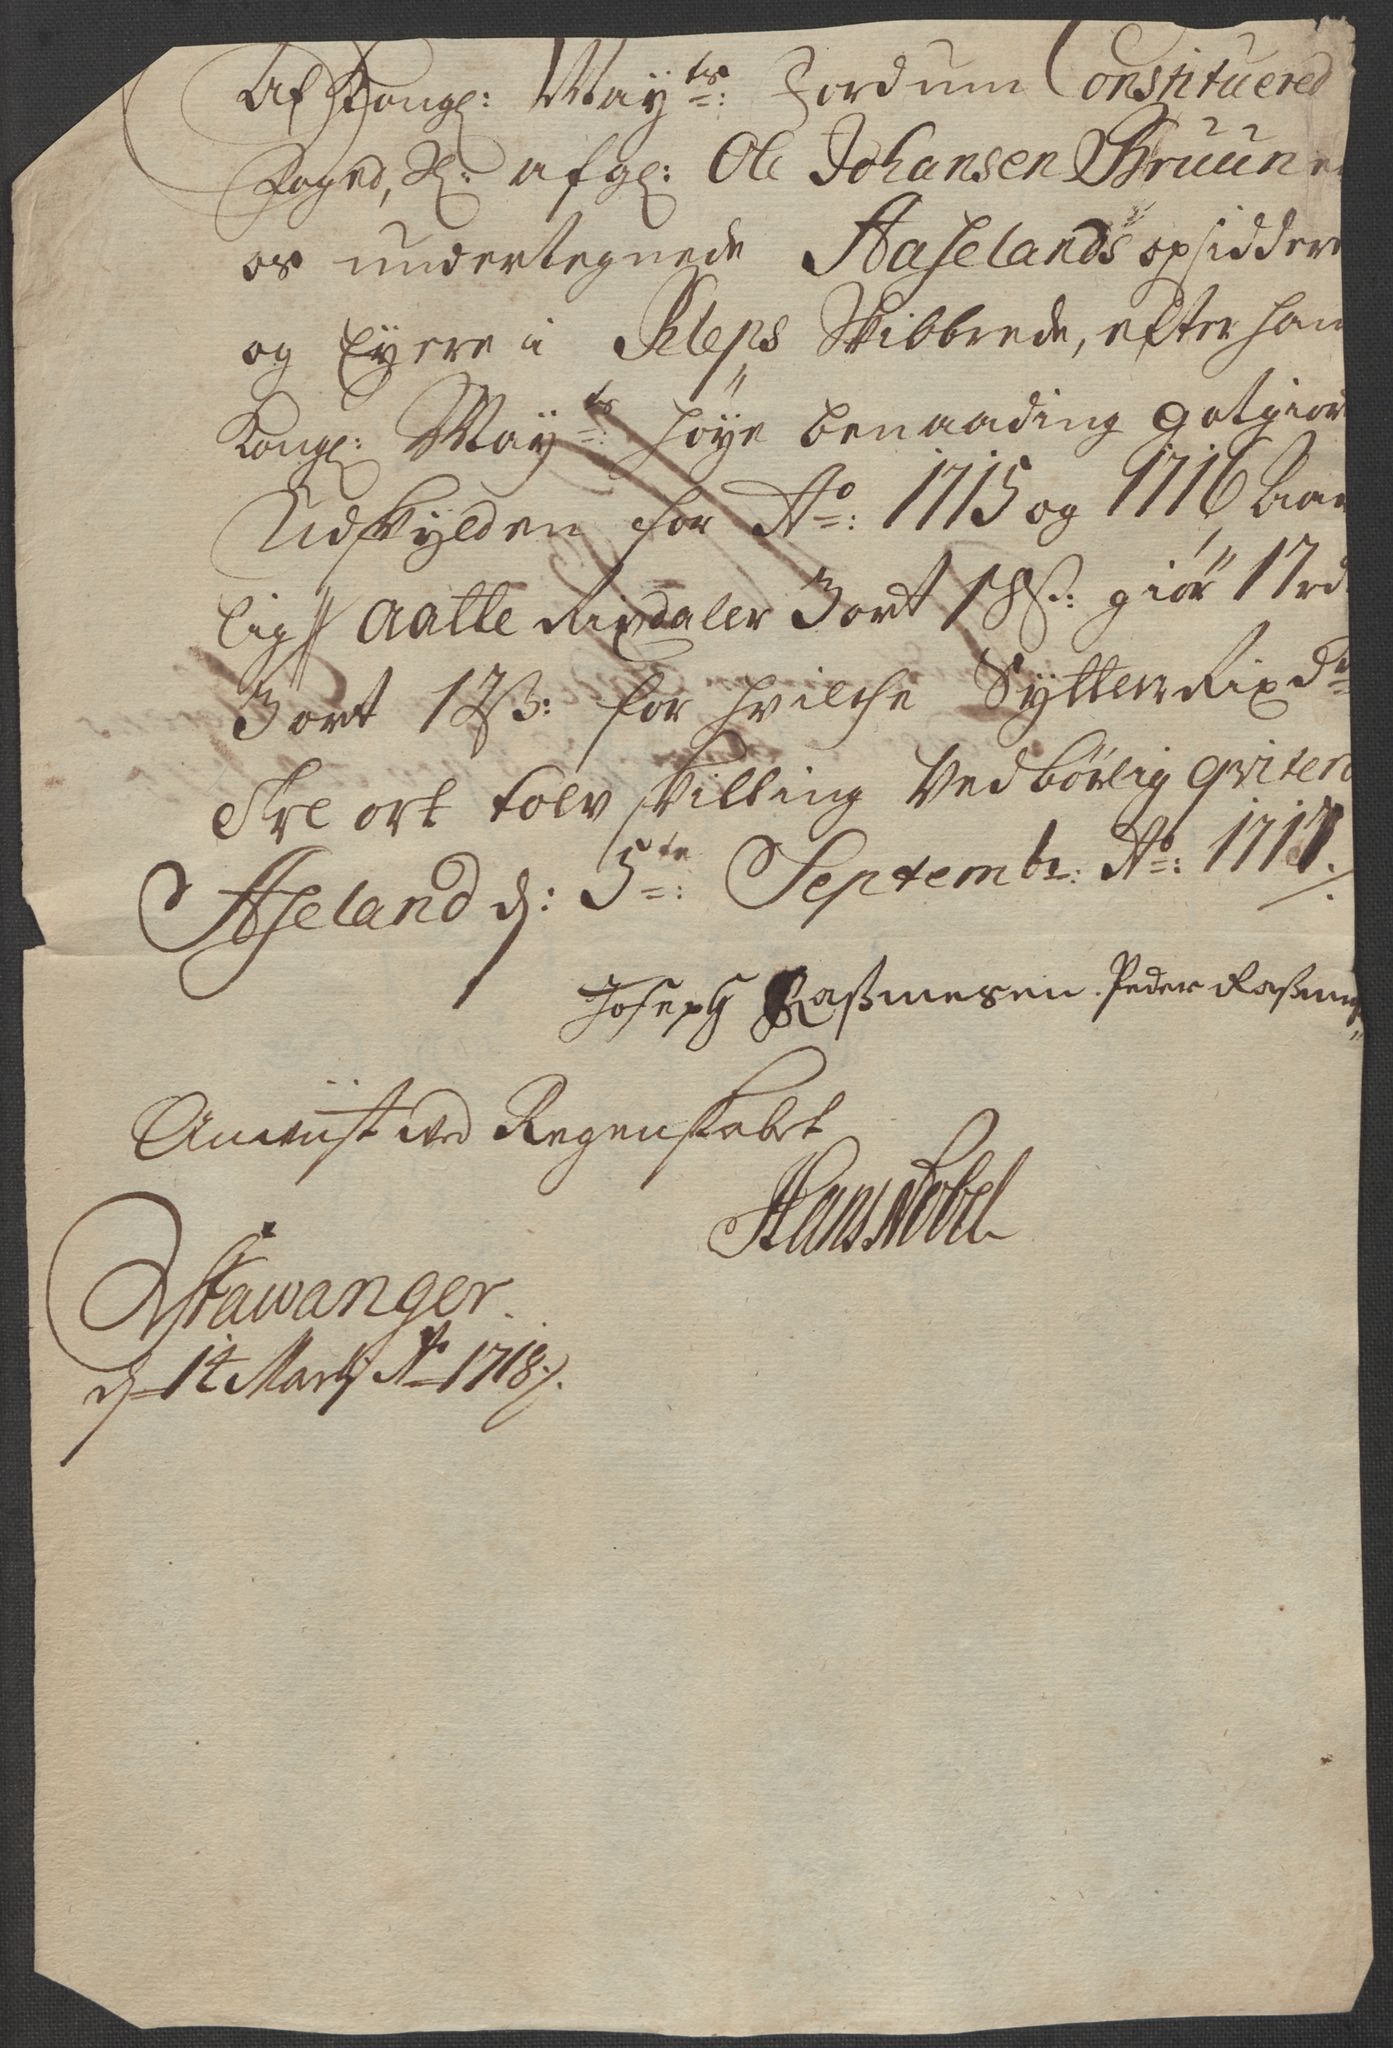 Af Kongl: Mayts: Fordum Constituered
Foged, Sl: afgl: Ole Johansen Bruun er
os undertegnede Aaselands opsiddere
og Eyere i Kleps Skibbrede, efter hans
Kongl: Mayts: høye benaading gotgiort
Udskylden for Ao: 1715 og 1716 Aar
lig aatte Rixdaler 3 ort 18 s: giør 17 rd
3 ort 12 s: for hvilche Sytten Rixdr
Tre ort tolv skilling Vedbørlig qviteres
Aseland d: 5te: Septembr: Ao: 1717.
Joseph Rasmesen Peder Rasmus
Anviist ved Regenskabet
Hans Nobel
Stawanger
d 14 Martij Ao 1718.